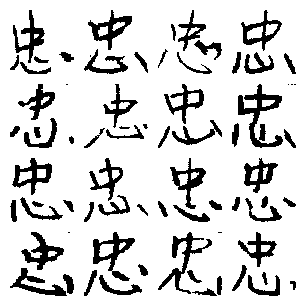 忠忠忠忠
忠忠忠忠
忠忠忠忠
忠忠忠忠